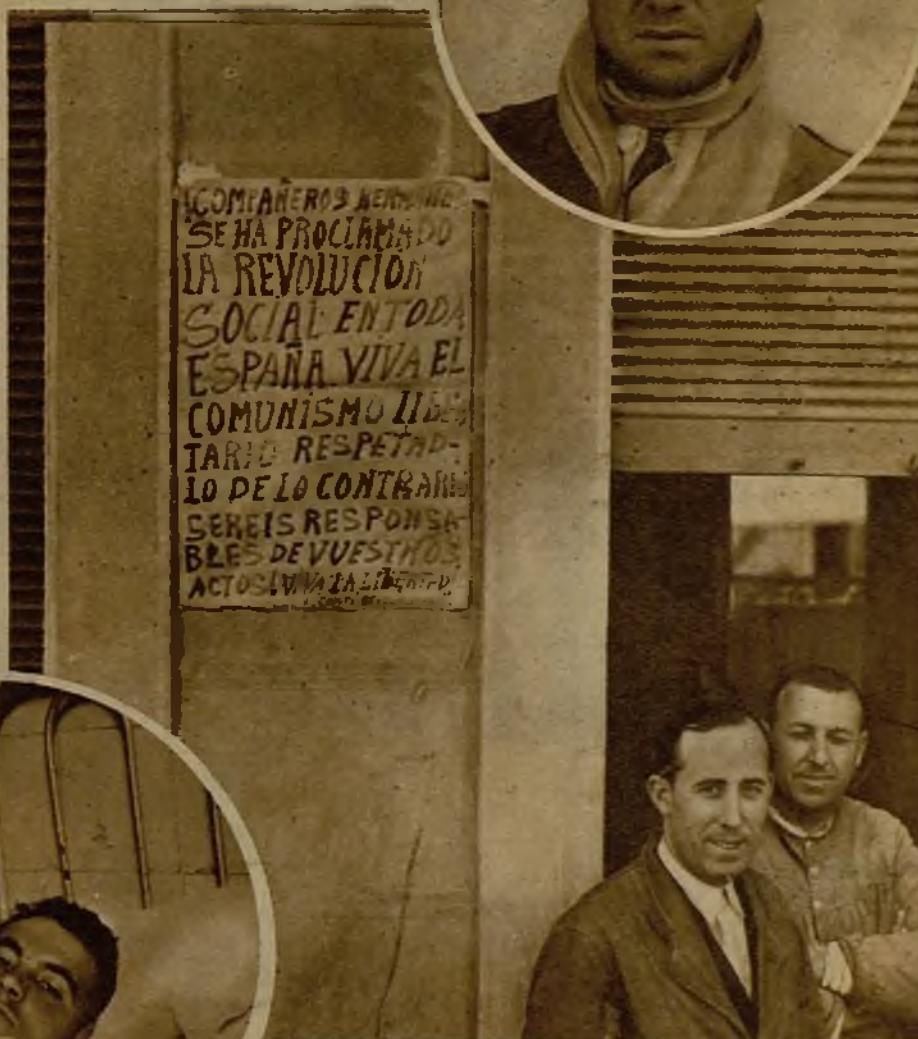 ¡COMPAÑEROS HERMANOS
SE HA PROCLAMADO
LA REVOLUCIÓN
SOCIAL EN TODA
ESPAÑA VIVA EL
COMUNISMO
TARIO RESPETAD-
LO DE LO CONTRARIO
SEREIS RESPONSA-
BLES DE VUESTROS
ACTOS! VIVA LA LIBERTAD